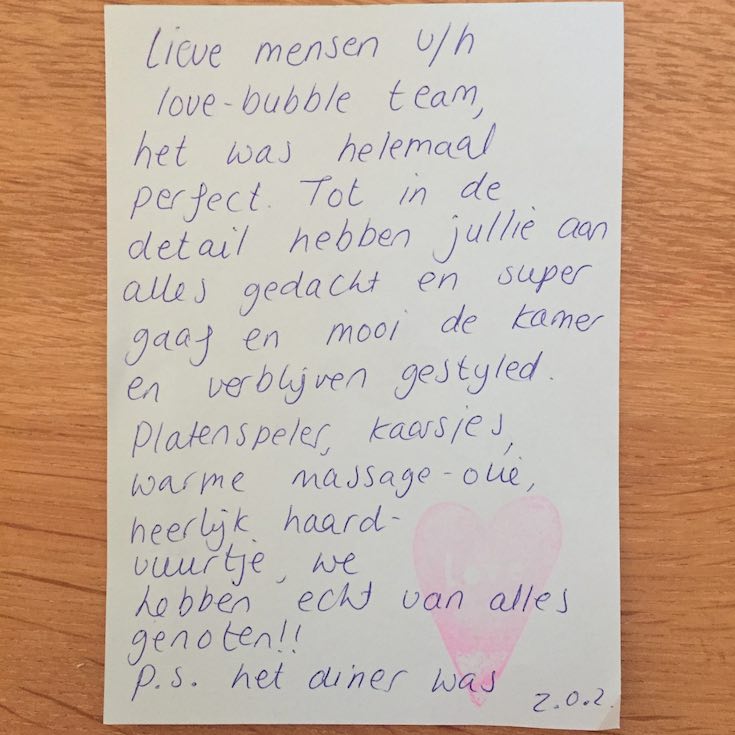 Lieve mensen v/h
love-bubble team,
het was helemaal
perfect. Tot in de
detail hebben jullie aan
alles gedacht en super
gaaf en mooi de kamer
en verblijven gestyled.
Platenspeler, kaarsjes,
warme massage-olie,
heerlijk haard-
vuurtje, we
hebben echt van alles
genoten!!
P.S. het diner was
z.o.z.